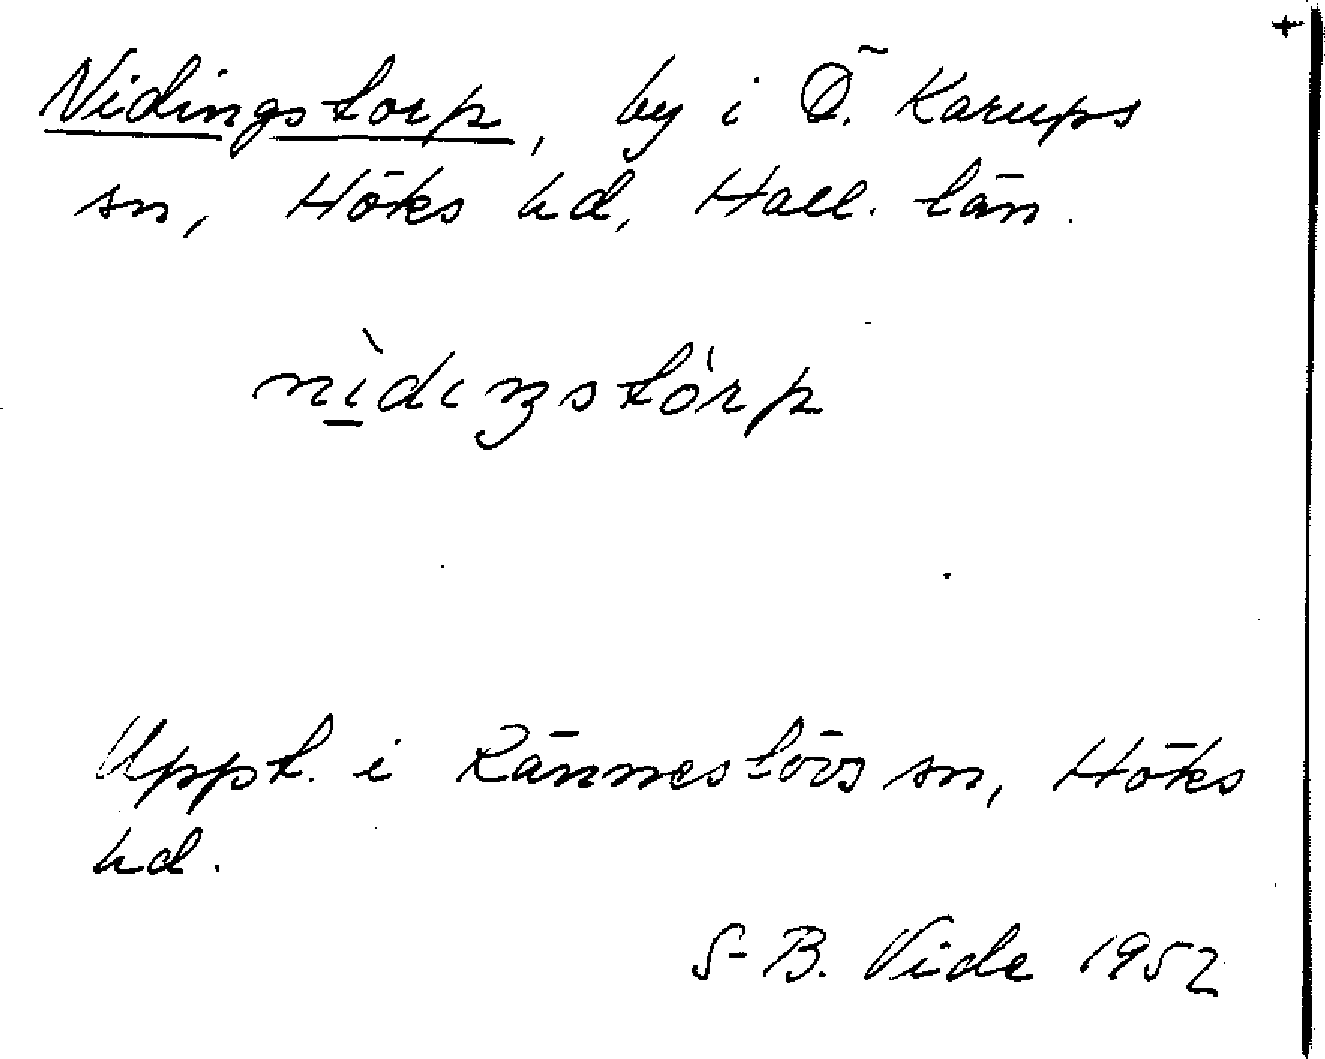 +
Nidingstorp, by i Ö. Karups
sn, Höks hd, Hall. län.
nìdıŋstórp
Uppt. i Ränneslövs sn, Höks
hd.
S-B. Vide 1952